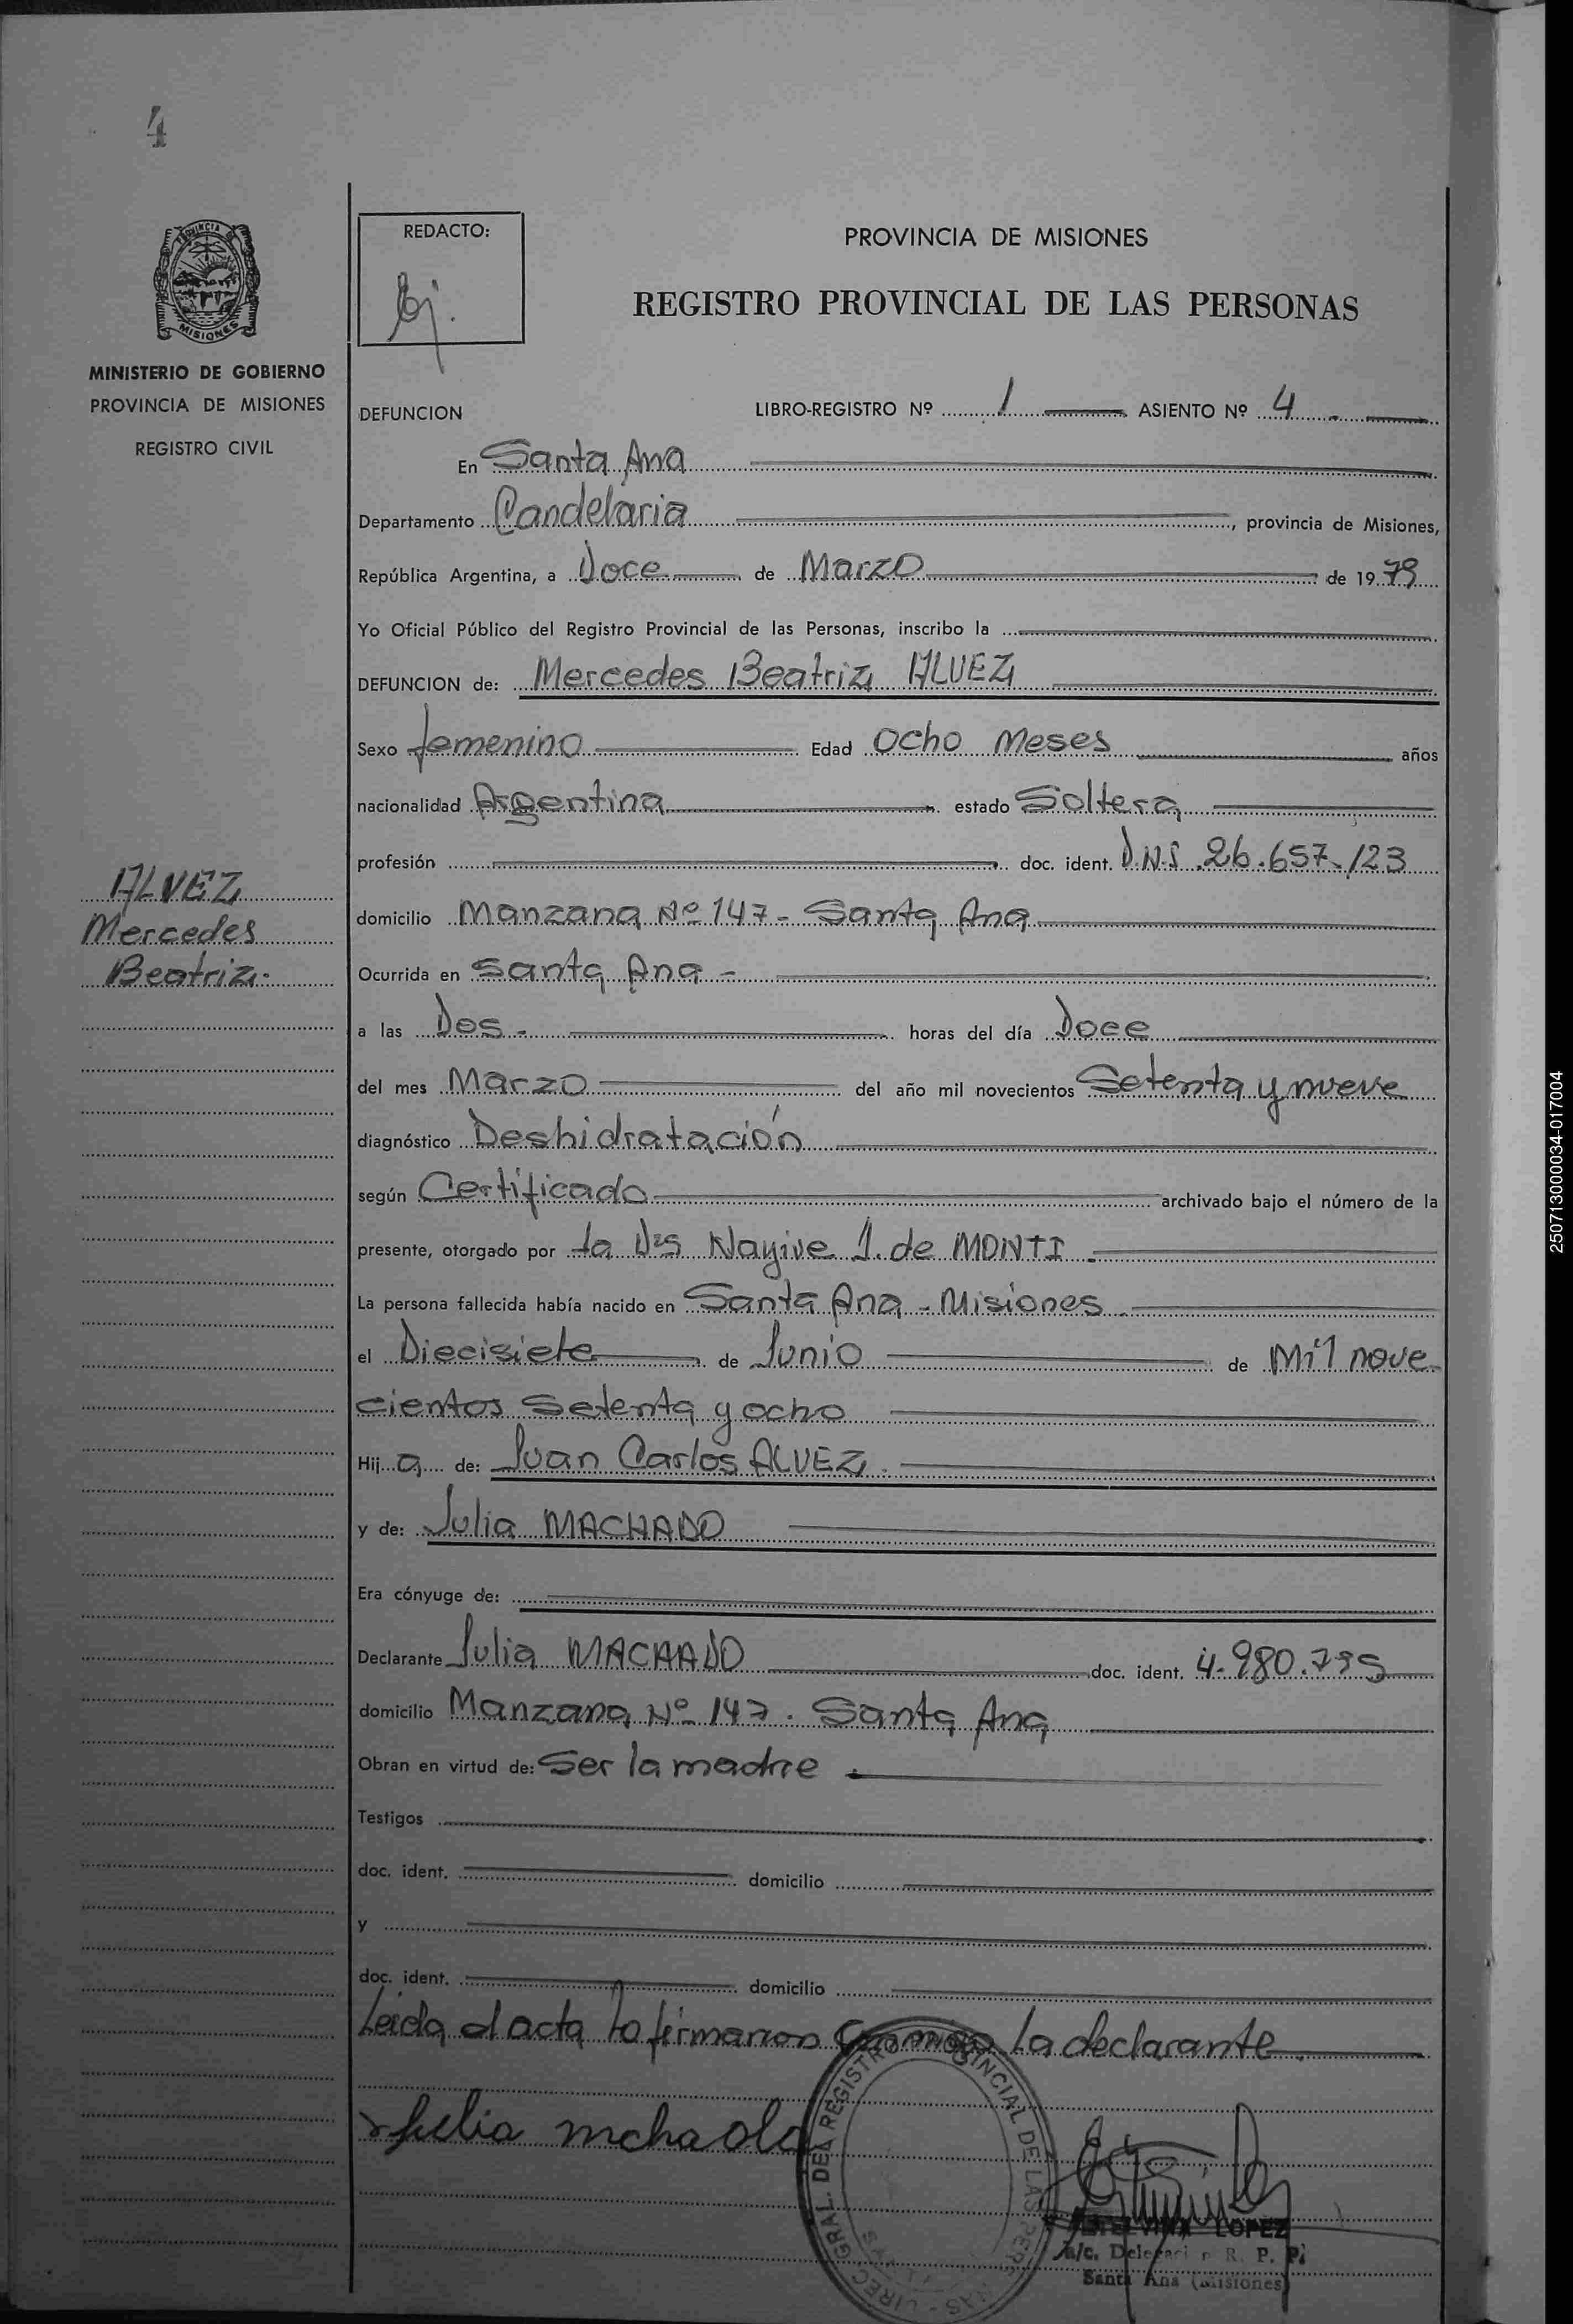 4
PROVINCIA DE
MISIONES
MINISTERIO DE GOBIERNO
PROVINCIA DE MISIONES
REGISTRO CIVIL
ALVEZ
Mercedes
Beatriz.
REDACTO:
PROVINCIA DE MISIONES
REGISTRO PROVINCIAL DE LAS PERSONAS
DEFUNCION LIBRO-REGISTRO Nº 1 ASIENTO Nº 4.
En Santa Ana
Departamento Candelaria, provincia de Misiones,
República Argentina, a Doce de Marzo de 1979
Yo Oficial Público del Registro Provincial de las Personas, inscribo la
DEFUNCION de: Mercedes Beatriz ALVEZ
Sexo femenino Edad ocho Meses años
nacionalidad Argentina estado Soltera
profesión doc. ident. D.N.I. 26.657.123
domicilio Manzana Nº 147 - Santa Ana
Ocurrida en Santa Ana -
a las Dos - horas del día Doce
del mes Marzo del año mil novecientos Setenta y nueve
diagnóstico Deshidratación
según Certificado archivado bajo el número de la
presente, otorgado por la Dra Nayive J. de MONTI
La persona fallecida había nacido en Santa Ana - Misiones
el Diecisiete de Junio de Mil nove-
cientos Setenta y ocho
Hija de: Juan Carlos ALVEZ.
y de: Julia MACHADO
Era cónyuge de:
Declarante Julia MACHADO doc. ident. 4.980.795
domicilio Manzana Nº 147. Santa Ana
Obran en virtud de: Ser la madre.
Testigos
doc. ident. domicilio
y
doc. ident. domicilio
Leida el acta la firmaron conmigo la declarante.
Julia mchado
DIREC. GRAL. DEL REGISTRO PROVINCIAL DE LAS PERSONAS
LOPEZ
a/c. Delegación R. P. P.
Santa Ana (Misiones)
250713000034-017004